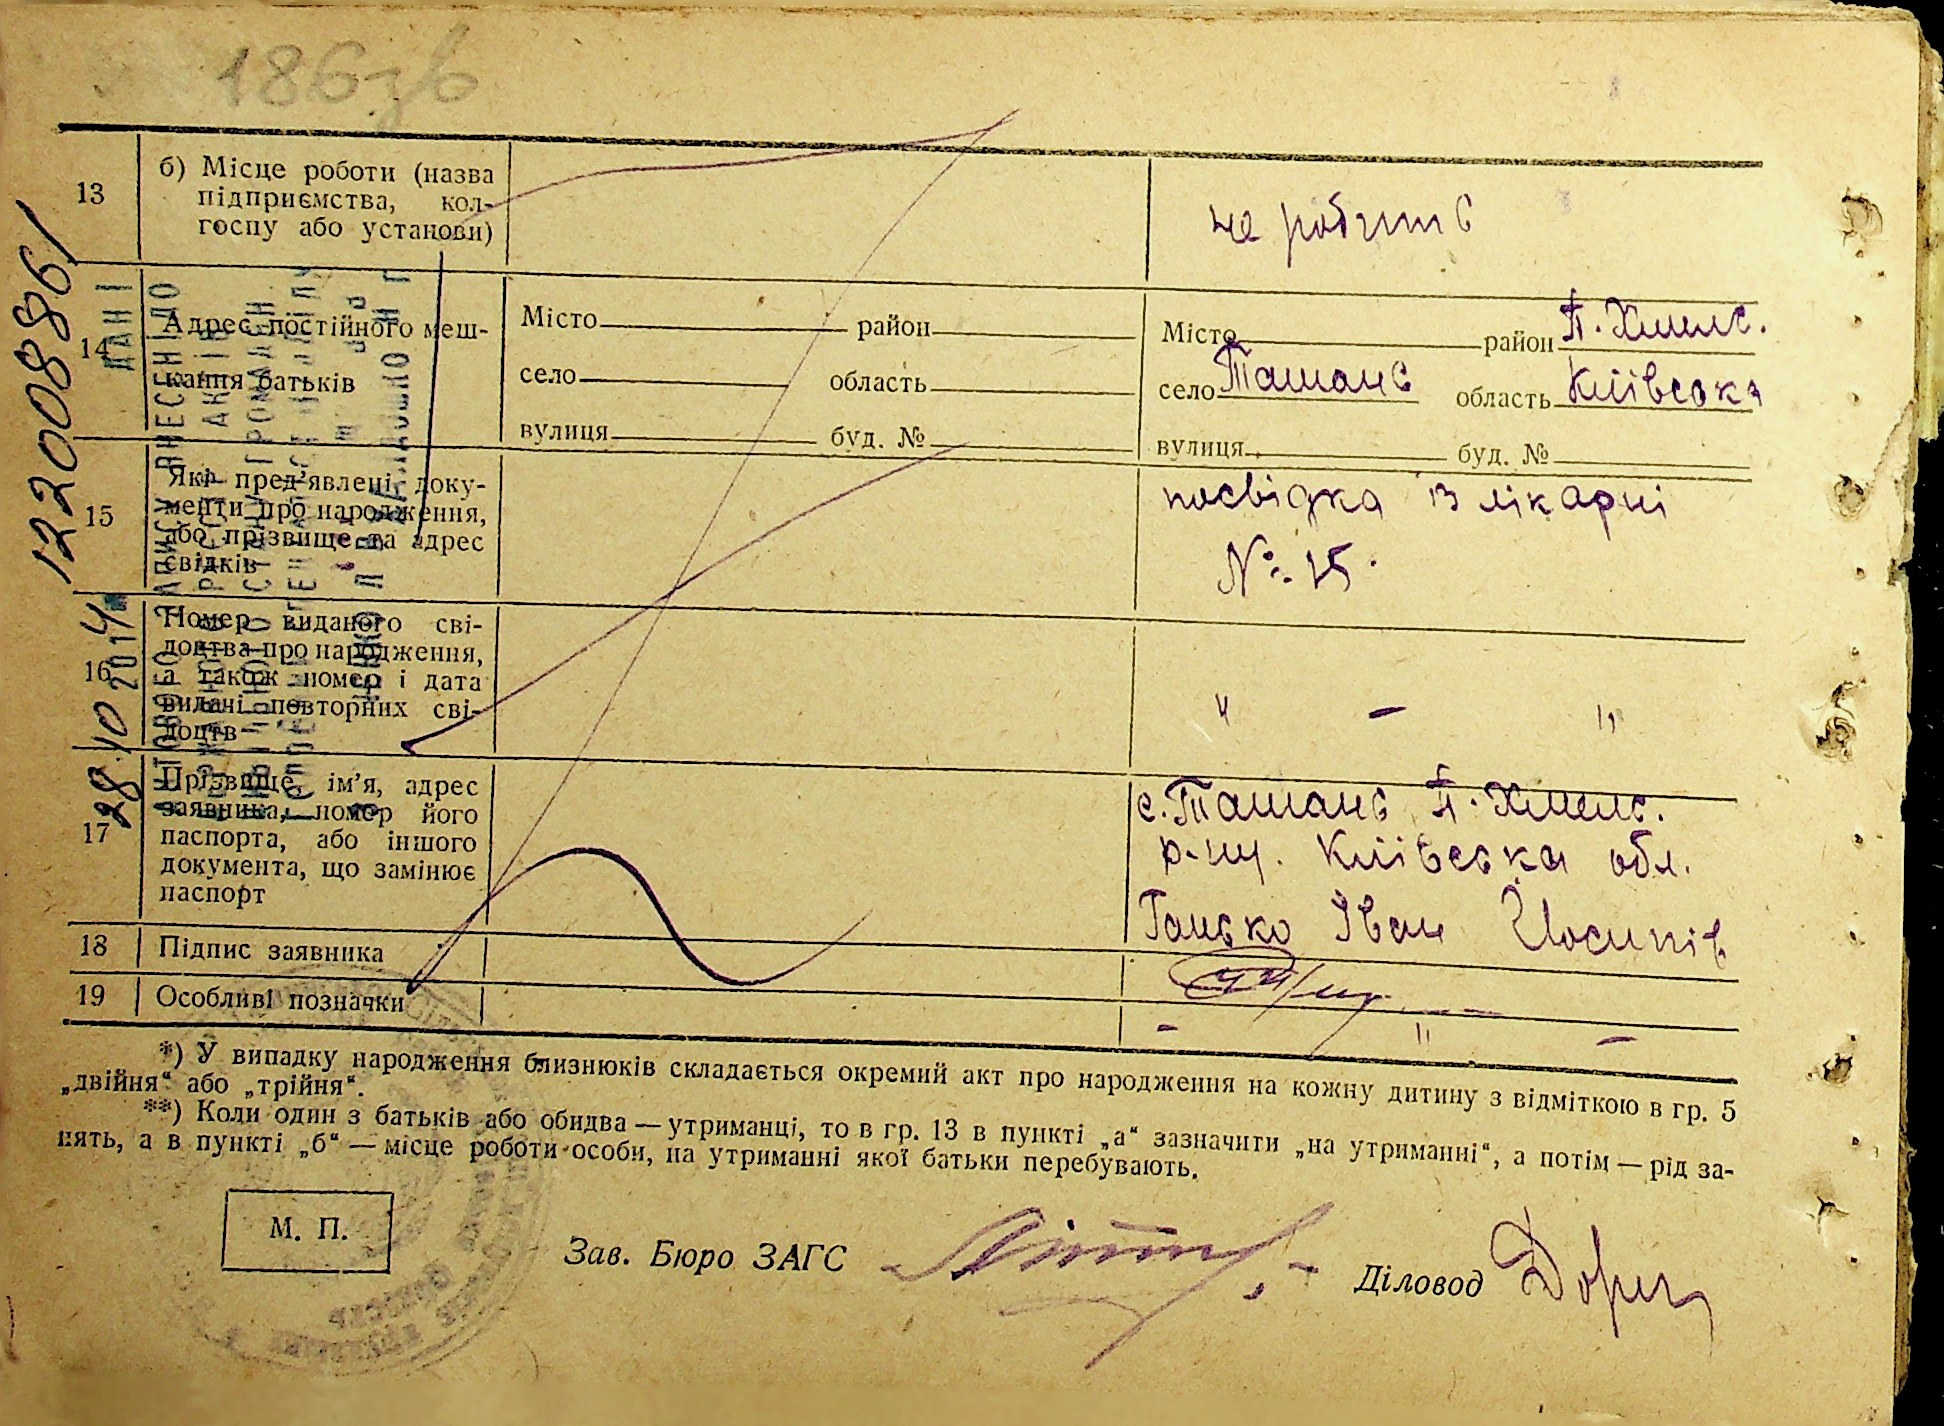 186зв
13
б) Місце роботи (назва
підприємства, кол-
госпу або установи)
не робить
14
Адрес постійного меш-
кання батьків
Місто район
село область
вулиця буд. №
Місто район П. Хмельс.
село Ташань область Київська
вулиця буд. №
15
Які пред'явлені доку-
менти про народження,
або прізвище та адрес
свідків
посвідка із лікарні
№ 15.
16
Номер виданого сві-
доцтва про народження,
а також номер і дата
видачі повторних сві-
доцтв
" — "
17
Прізвище, ім'я, адрес
заявника, номер його
паспорта, або іншого
документа, що замінює
паспорт
с. Ташань П. Хмельс.
р-ну. Київська обл.
Ганько Іван Йосипів
18 Підпис заявника
19 Особливі позначки
- " -
*) У випадку народження близнюків складається окремий акт про народження на кожну дитину з відміткою в гр. 5
„двійня“ або „трійня“.
**) Коли один з батьків або обидва — утриманці, то в гр. 13 в пункті „а“ зазначити „на утриманні“, а потім — рід за-
нять, а в пункті „б“ — місце роботи особи, на утриманні якої батьки перебувають.
М. П.
Зав. Бюро ЗАГС
Діловод
122008861
28.10 2014
ДАНІ
АКТОВОГО ЗАПИСУ ВНЕСЕНІ ДО